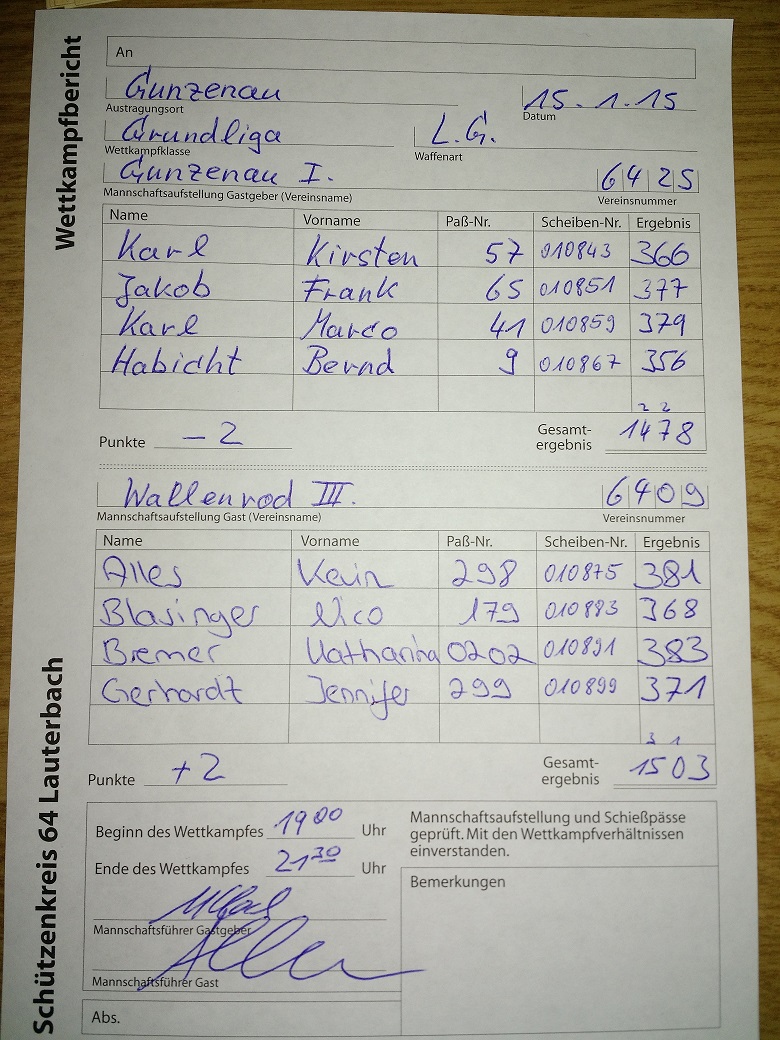 Wettkampfbericht
An
Gunzenau 15.1.15
Austragungsort Datum
Grundliga L.G.
Wettkampfklasse Waffenart
Gunzenau I. 6425
Mannschaftsaufstellung Gastgeber (Vereinsname) Vereinsnummer
Name Vorname Paß-Nr. Scheiben-Nr. Ergebnis
Karl Kirsten 57 010843 366
Jakob Frank 65 010851 377
Karl Marco 41 010859 379
Habicht Bernd 9 010867 356
2 2
Punkte – 2 Gesamt-
ergebnis 1478
Wallenrod III. 6409
Mannschaftsaufstellung Gast (Vereinsname) Vereinsnummer
Name Vorname Paß-Nr. Scheiben-Nr. Ergebnis
Alles Kevin 298 010875 381
Blasinger Nico 179 010883 368
Bremer Katharina 0202 010891 383
Gerhardt Jennifer 299 010899 371
3 1
Punkte +2 Gesamt-
ergebnis 1503
Schützenkreis 64 Lauterbach
Beginn des Wettkampfes 19 00 Uhr
Ende des Wettkampfes 21 30 Uhr
Mannschaftsführer Gastgeber
Mannschaftsführer Gast
Abs.
Mannschaftsaufstellung und Schießpässe
geprüft. Mit den Wettkampfverhältnissen
einverstanden.
Bemerkungen